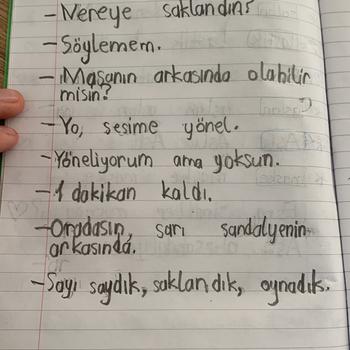 -Nereye saklandın?
-Söylemem.
-Masanın arkasında olabilir
misin?
-Yo, sesime yönel.
-Yöneliyorum ama yoksun.
-1 dakikan kaldı.
-Oradasın, sarı sandalyenin
arkasında.
-Sayı saydık, saklandık, oynadık.